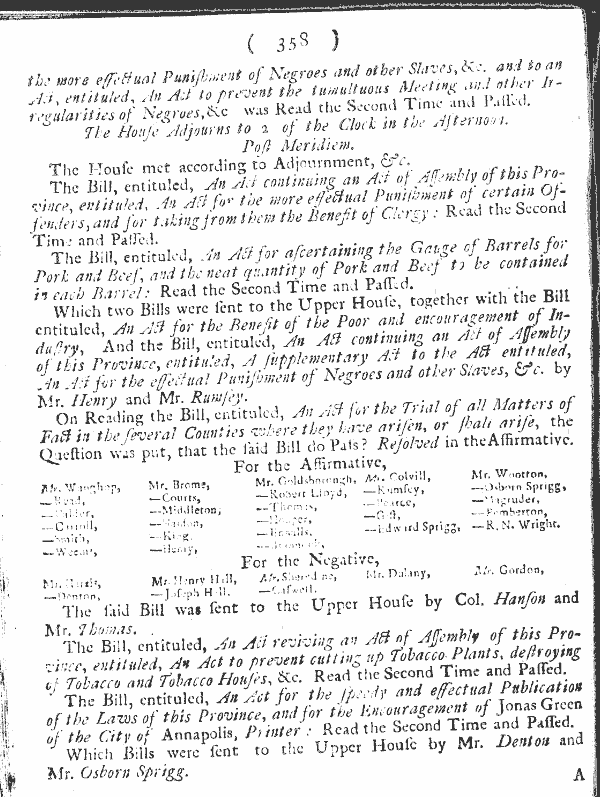 ( 358 )
the more effectual Puniſhment of Negroes and other Slaves, &c. and to an
Act, entituled, An Act to prevent the tumultuous Meeting and other Ir-
regularities of Negroes, &c was Read the Second Time and Paſſed.
The Houſe Adjourns to 2 of the Clock in the Afternoon.
Poſt Meridiem.
The Houſe met according to Adjournment, &c.
The Bill, entituled, An Act continuing an Act of Aſſembly of this Pro-
vince, entituled, An Act for the more effectual Puniſhment of certain Of-
fenders, and for taking from them the Benefit of Clergy: Read the Second
Time and Paſſed.
The Bill, entituled, An Act for aſcertaining the Gauge of Barrels for
Pork and Beef, and the neat quantity of Pork and Beef to be contained
in each Barrel: Read the Second Time and Paſſed.
Which two Bills were ſent to the Upper Houſe, together with the Bill
entituled, An Act for the Benefit of the Poor and encouragement of In-
duſtry, And the Bill, entituled, An Act continuing an Act of Aſſembly
of this Province, entituled, A ſupplementary Act to the Act entituled,
An Act for the effectual Puniſhment of Negroes and other Slaves, &c. by
Mr. Henry and Mr. Rumſey.
On Reading the Bill, entituled, An Act for the Trial of all Matters of
Fact in the ſeveral Counties where they have ariſen, or ſhall ariſe, the
Queſtion was put, that the ſaid Bill do Paſs? Reſolved in the Affirmative.
For the Affirmative,
Mr. Brome, Mr. Goldsborough, Mr. Colvill, Mr. Wootton,
—Courts, —Robert Lloyd, —Rumſey, —Osborn Sprigg,
—Middleton, —Thomas, —Pearce, —Magruder,
—Carroll, —Hooper, —Pemberton,
—Smith, —King, —Edward Sprigg, —R. N. Wright.
—Weems, —Henry,
For the Negative,
Mr. Harris, Mr. Henry Hall, Mr. Dulany, Mr. Gordon,
—Denton, —Joſeph Hall.
The ſaid Bill was ſent to the Upper Houſe by Col. Hanſon and
Mr. Thomas.
The Bill, entituled, An Act reviving an Act of Aſſembly of this Pro-
vince, entituled, An Act to prevent cutting up Tobacco Plants, deſtroying
of Tobacco and Tobacco Houſes, &c. Read the Second Time and Paſſed.
The Bill, entituled, An Act for the ſpeedy and effectual Publication
of the Laws of this Province, and for the Encouragement of Jonas Green
of the City of Annapolis, Printer: Read the Second Time and Paſſed.
Which Bills were ſent to the Upper Houſe by Mr. Denton and
Mr. Osborn Sprigg.
A